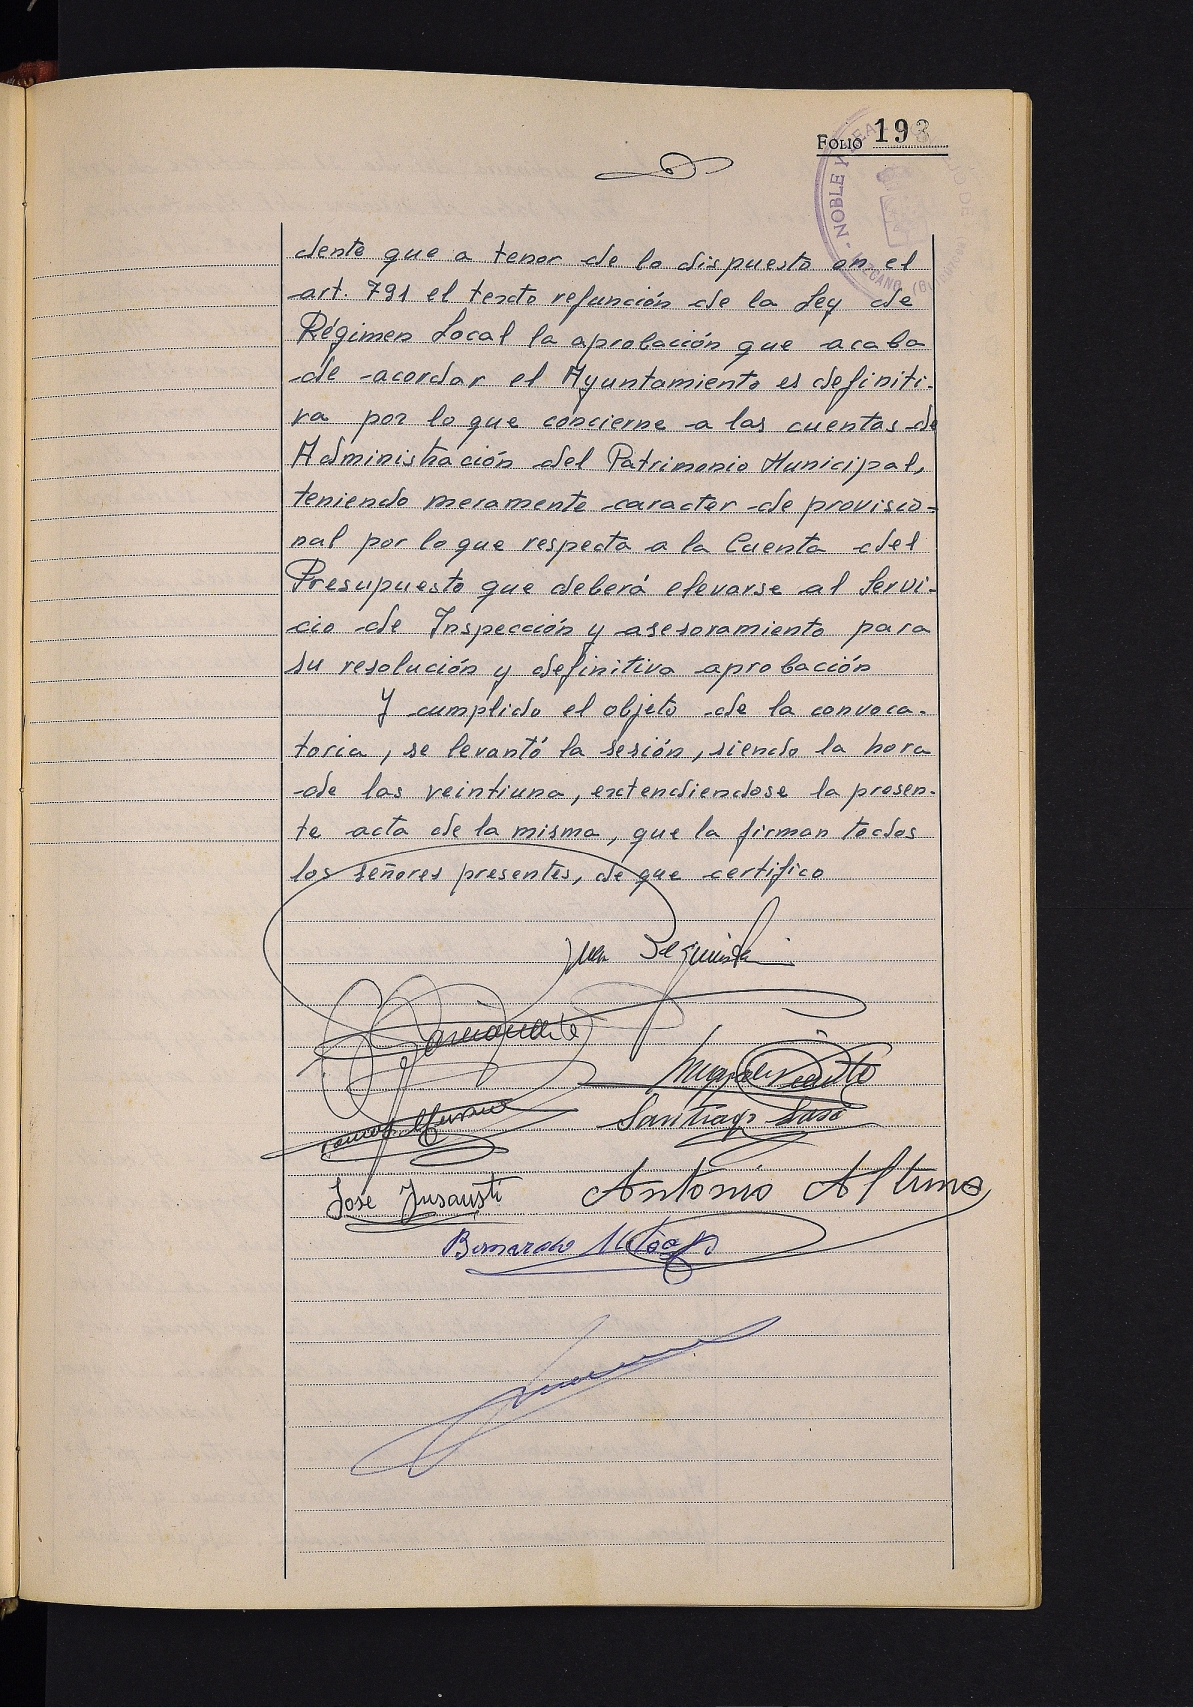 FOLIO 193
dente que a tenor de lo dispuesto en el
art. 791 el texto refunción de la Ley de
Régimen Local la aprobación que acaba
de acordar el Ayuntamiento es definiti-
va por lo que concierne a las cuentas de
Administración del Patrimonio Municipal,
teniendo meramente caracter de provisio-
nal por lo que respecta a la Cuenta del
Presupuesto que deberá elevarse al Servi-
cio de Inspección y asesoramiento para
su resolución y definitiva aprobación
Y cumplido el objeto de la convoca-
toria, se levantó la sesión, siendo la hora
de las veintiuna, extendiendose la presen-
te acta de la misma, que la firman todos
los señores presentes, de que certifico
Santiago Sasa
José Insausti Antonio Altuna
Bernardo